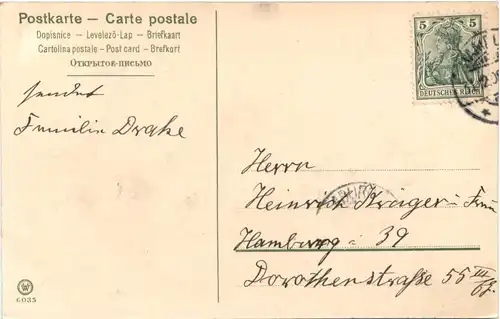 Postkarte — Carte postale
Dopisnice — Levelező-Lap — Briefkaart
Cartolina postale - Post card - Brefkort
Открытое-письмо
sendet
Familie Drake
5 5
DEUTSCHES REICH
Herrn
Heinrich Krüger
Hamburg = 39
Dorothenstraße 55 III
6035